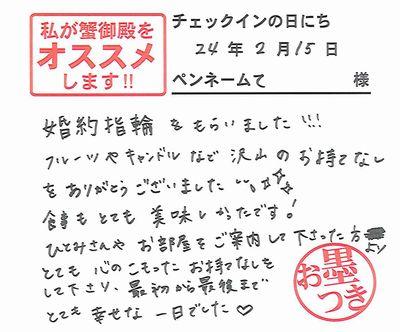 私が蟹御殿を
オススメ
します!!
チェックインの日にち
24年2月15日
ペンネームて 様
婚約指輪をもらいました!!!
フルーツやキャンドルなど沢山のお持てなし
をありがとうございました
食事もとても美味しかったです!
ひとみさんやお部屋をご案内して下さった方より
とても心のこもったお持てなしを
して下さり、最初から最後まで
とても幸せな一日でした♡
お墨つき